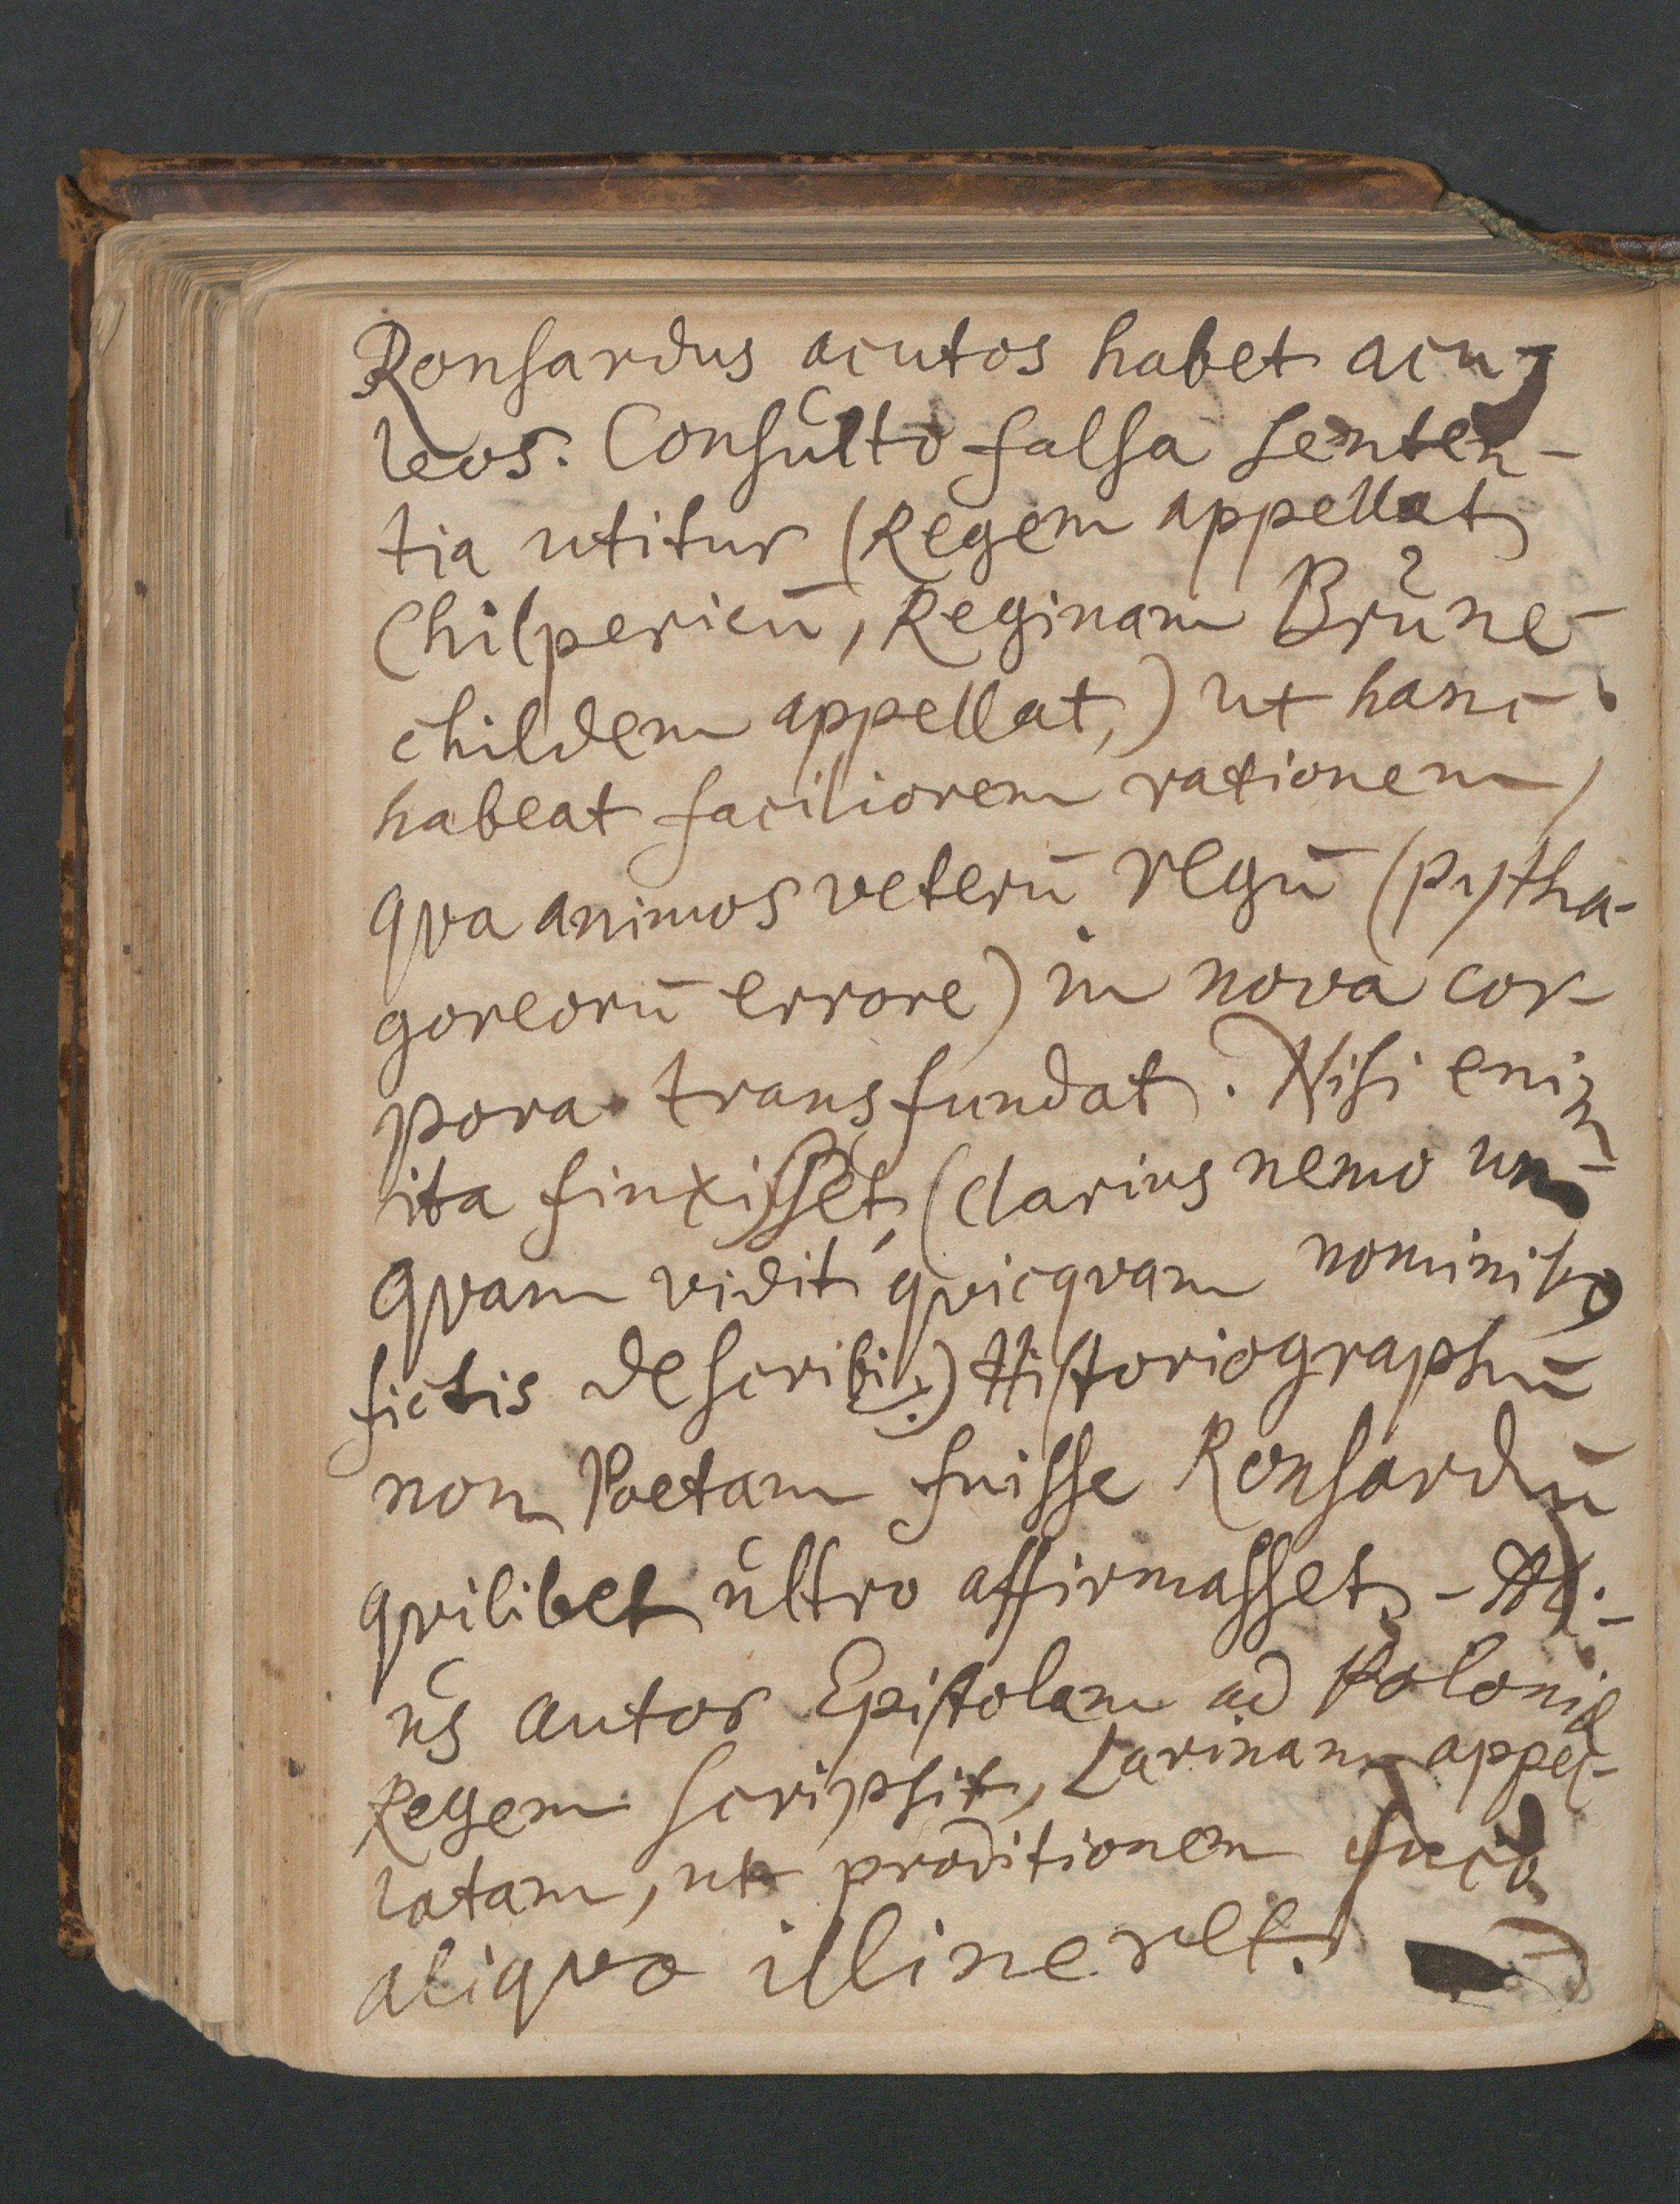 Ronsardus acutos habet acu-
leos. Consulto falsa senten-
tia utitur (Regem appellat
Chilpericū, Reginam Brune-
childem appellat,) ut hanc
habeat faciliorem rationem,
qva animos veterū regū (pytha-
goreorū errore) in nova cor-
pora transfundat. Nisi enim
ita finxisset, (clarius nemo un-
qvam vidit qvicqvam nominibꝫ
fictis describi:) Historiographū
non Poetam fuisse Ronsardū
qvilibet ultro affirmasset.
us autor Epistolam ad Poloniæ
Regem scripsit, Larinam appel-
latam, ut proditionem fuco
aliqvo illineret.